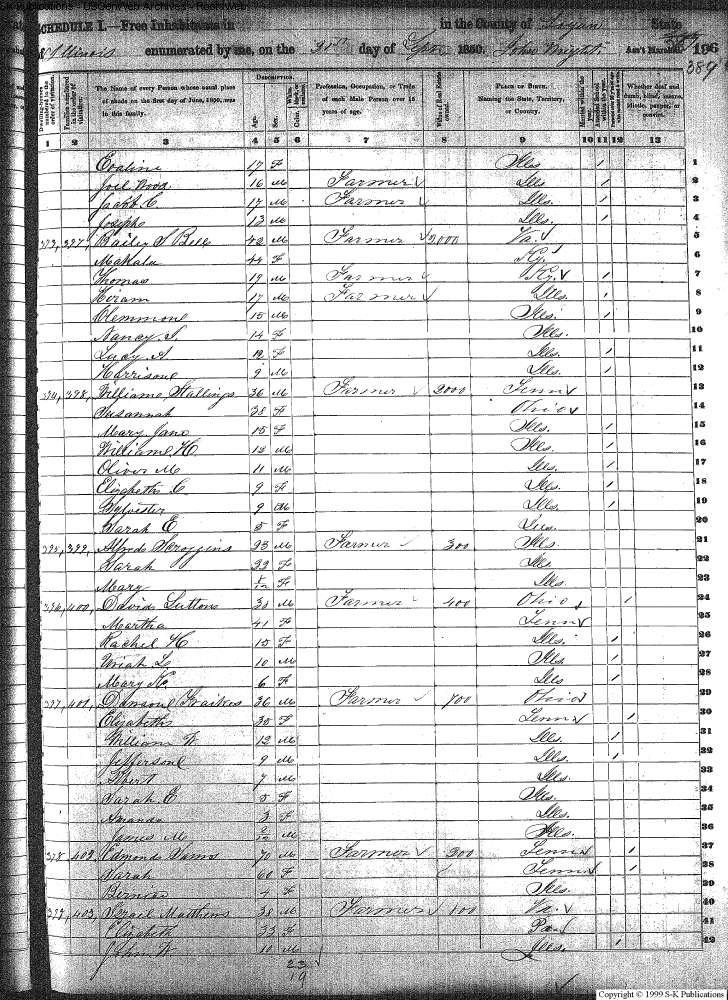 S-K Publications - USGenWeb Archives - Rootsweb
SCHEDULE I.—Free Inhabitants in in the County of Logan State
of Illinois enumerated by me, on the day of 1850. John Wright Ass't Marshal. 196
389
DESCRIPTION.
Dwelling-houses numbered in the order of visitation. Families numbered in the order of visitation. The Name of every Person whose usual place of abode on the first day of June, 1850, was in this family. Age. Sex. Profession, Occupation, or Trade of each Male Person over 15 years of age. Value of Real Estate owned. PLACE OF BIRTH. Naming the State, Territory, or Country. Married within the year. Attended School within the year. Whether deaf and dumb, blind, insane, idiotic, pauper, or convict.
1 2 3 4 5 6 7 8 9 10 11 12 13
Evaline 17 F Ills / 1
Joel Wood 16 M Farmer Ills. / 2
Jacob C. 17 M Farmer Ills. / 3
Joseph 13 M Ills. / 4
393, 397, Bailey S Bell 42 M Farmer 2000 Va. 5
Mahala 44 F Ky. 6
Thomas 19 M Farmer Ky. / 7
Hiram 17 M Farmer Ills. / 8
Clemmone 15 M Ills. / 9
Nancy S. 14 F Ills. 10
Lucy A 12 F Ills. / 11
Harrisone 9 M Ills. / 12
394, 398, Williame Stallings 36 M Farmer 2000 Tenn 13
Susannah 38 F Ohio 14
Mary Jane 15 F Ills. / 15
Williame H 13 M Ills. / 16
Oliver M 11 M Ills. / 17
Elizabeth C. 9 F Ills. / 18
Sylvister 9 M Ills. / 19
Sarah E 5 F Ills. 20
395, 399, Alfred Scroggins 23 M Farmer 300 Ills. 21
Sarah 22 F Ills 22
Mary F Ills. 23
396, 400, David Suttons 38 M Farmer 400 Ohio / 24
Martha 41 F Tenn 25
Rachel H 15 F Ills. / 26
Uriah L. 10 M Ills / 27
Mary K. 6 F Ills / 28
397, 401, Dawsone 36 M Farmer 700 Ohio 29
Elizabeth 35 F Tenn / 30
William W. 12 M Ills. / 31
Jeffersone 9 M Ills. / 32
Albert 7 M Ills. 33
Sarah E 5 F Ills. 34
Amanda 3 F Ills. 35
James M 2/12 M Ills. 36
398, 402, Edmond Sams 70 M Farmer 300 Tenn / 37
Sarah 60 F Tenn / 38
Bernise 4 F Ills. 39
399, 403, Israel Matthews 38 M Farmer 100 Va. 40
Elizabeth 33 F Pa. 41
John W 10 M Ills. / 42
23
19
Copyright © 1999 S-K Publications